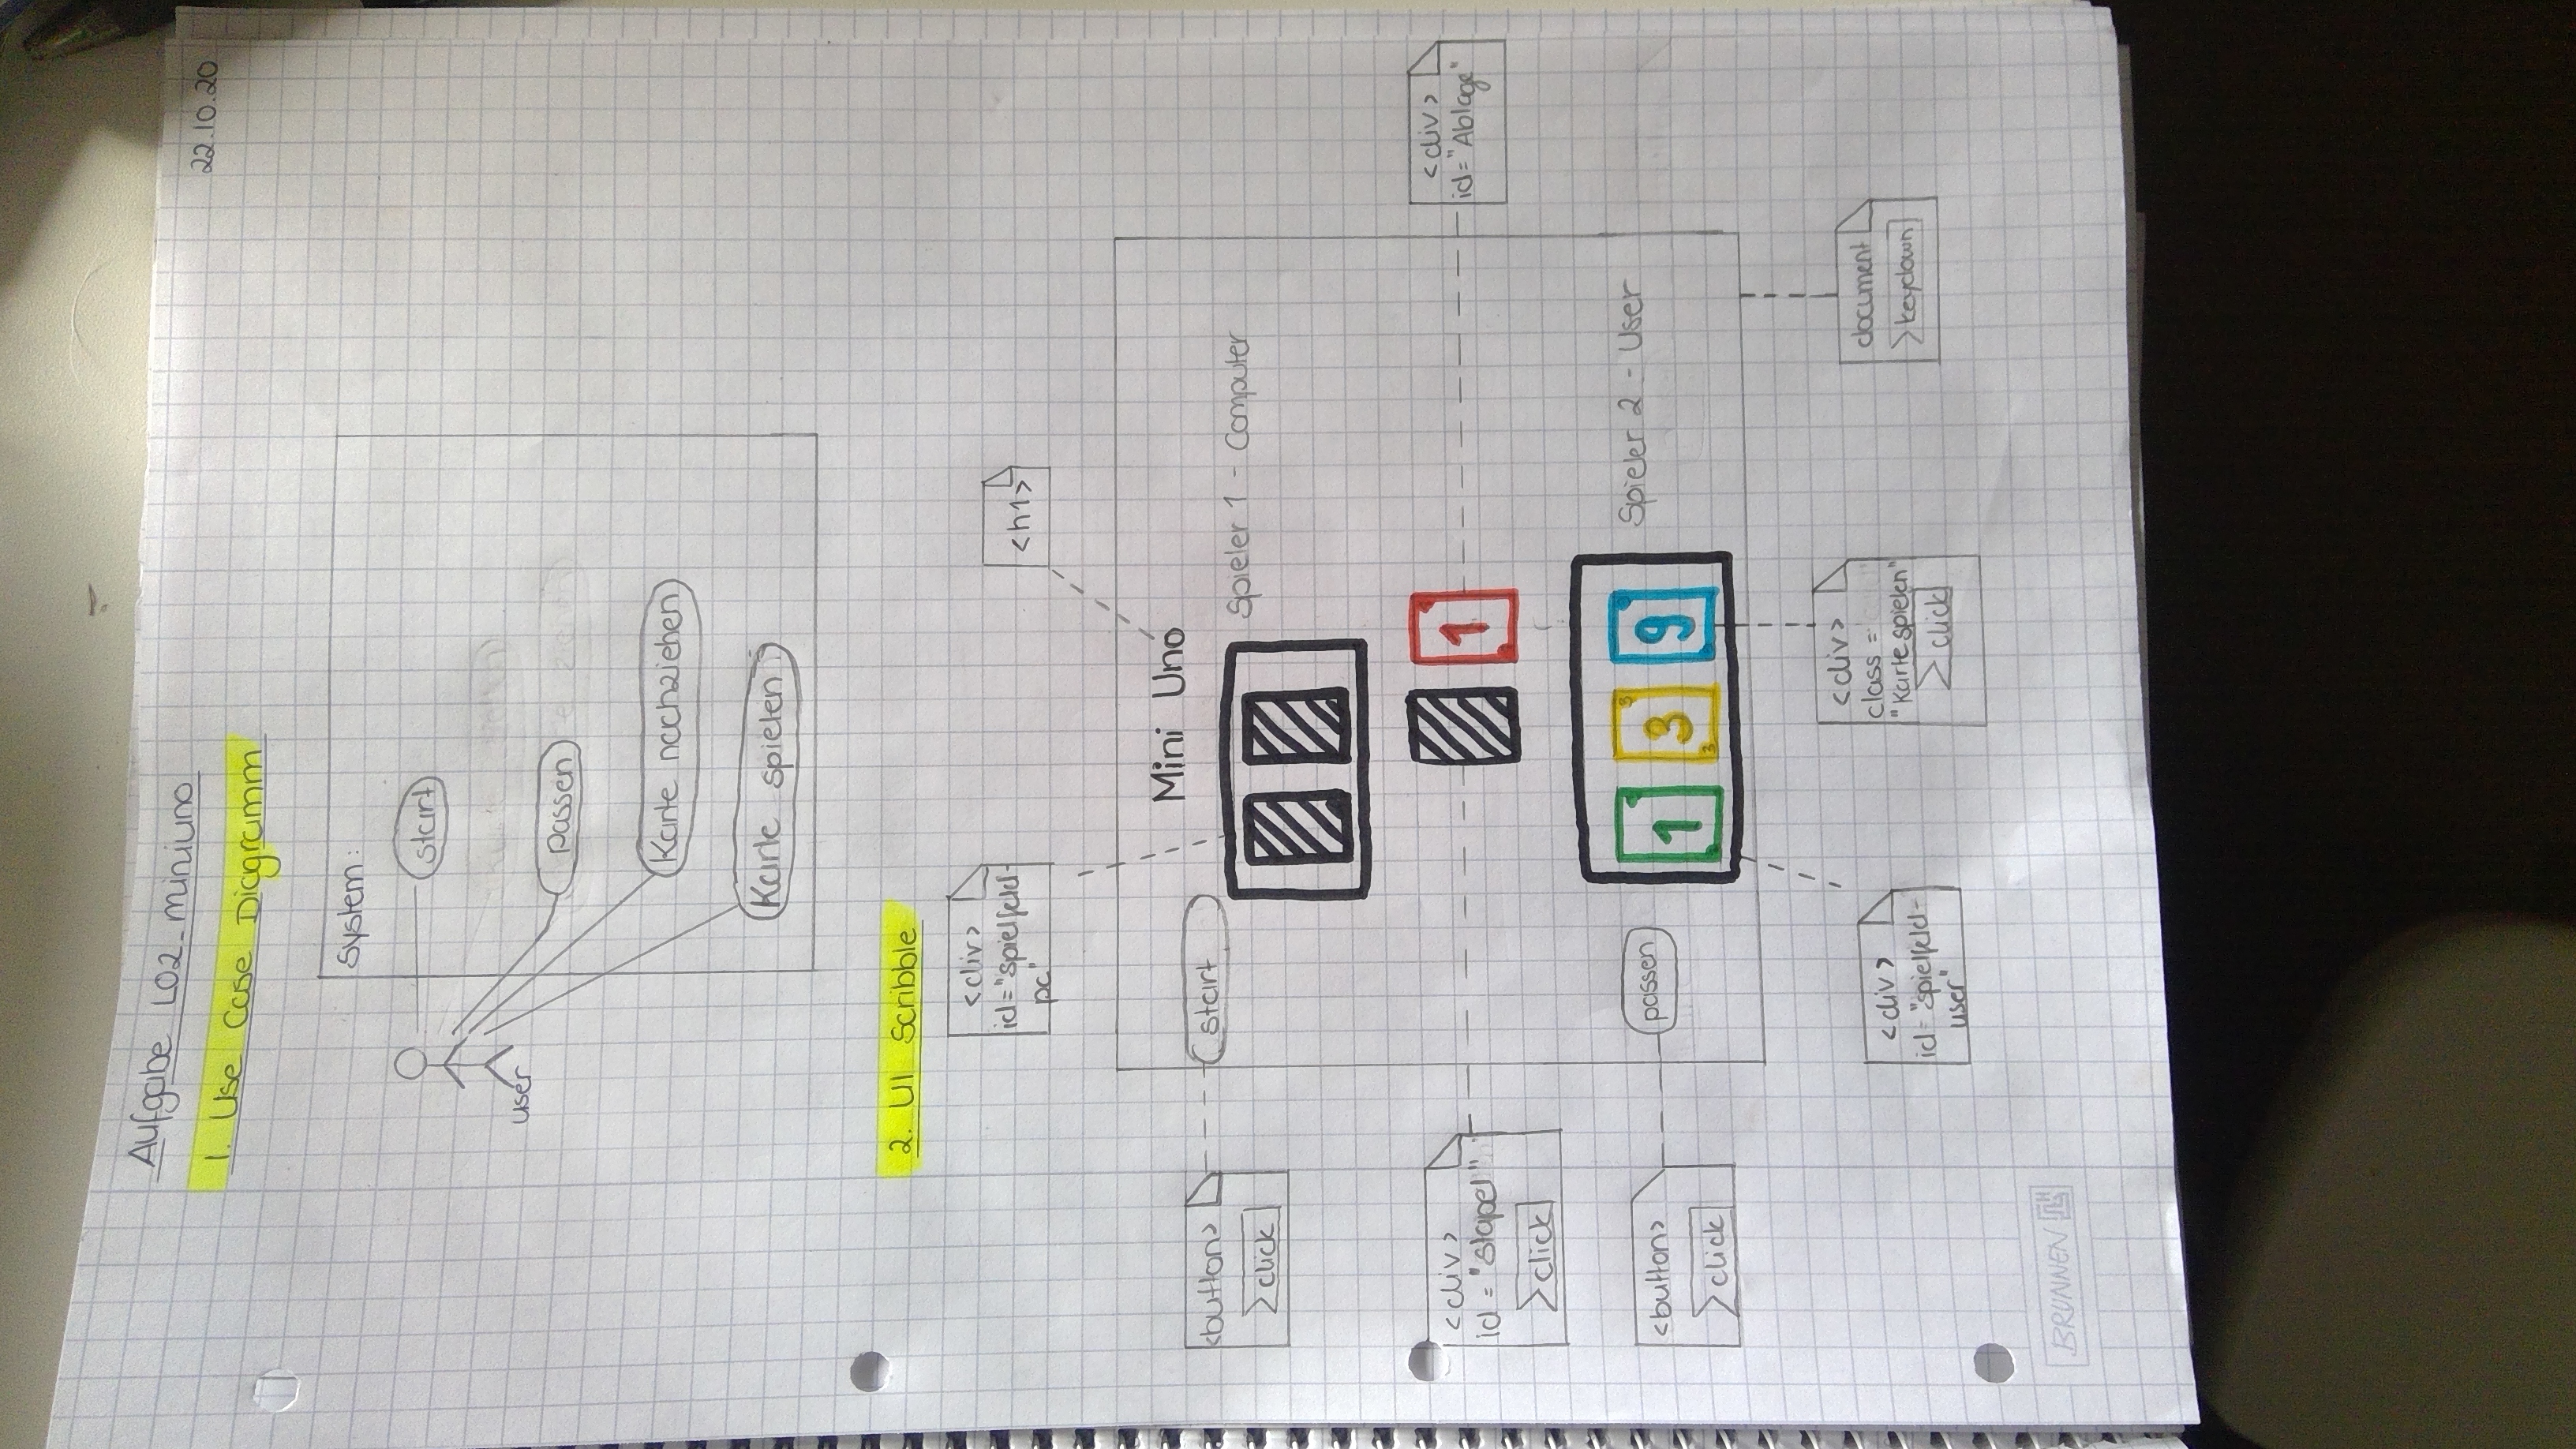 Aufgabe L02_miniuno
22.10.20
1. Use Case Diagramm
System:
start
user
passen
Karte nachziehen
Karte spielen
2. UI Scribble
<div>
id="spielfeld-
pc"
<h1>
Mini Uno
<button>
click
start
Spieler 1 - Computer
<div>
id = "stapel"
click
1
<div>
id="Ablage"
<button>
click
passen
1 3 9
3
3
Spieler 2 - User
<div>
id="spielfeld-
user"
<div>
class =
"Karte spielen"
click
document
keydown
BRUNNEN